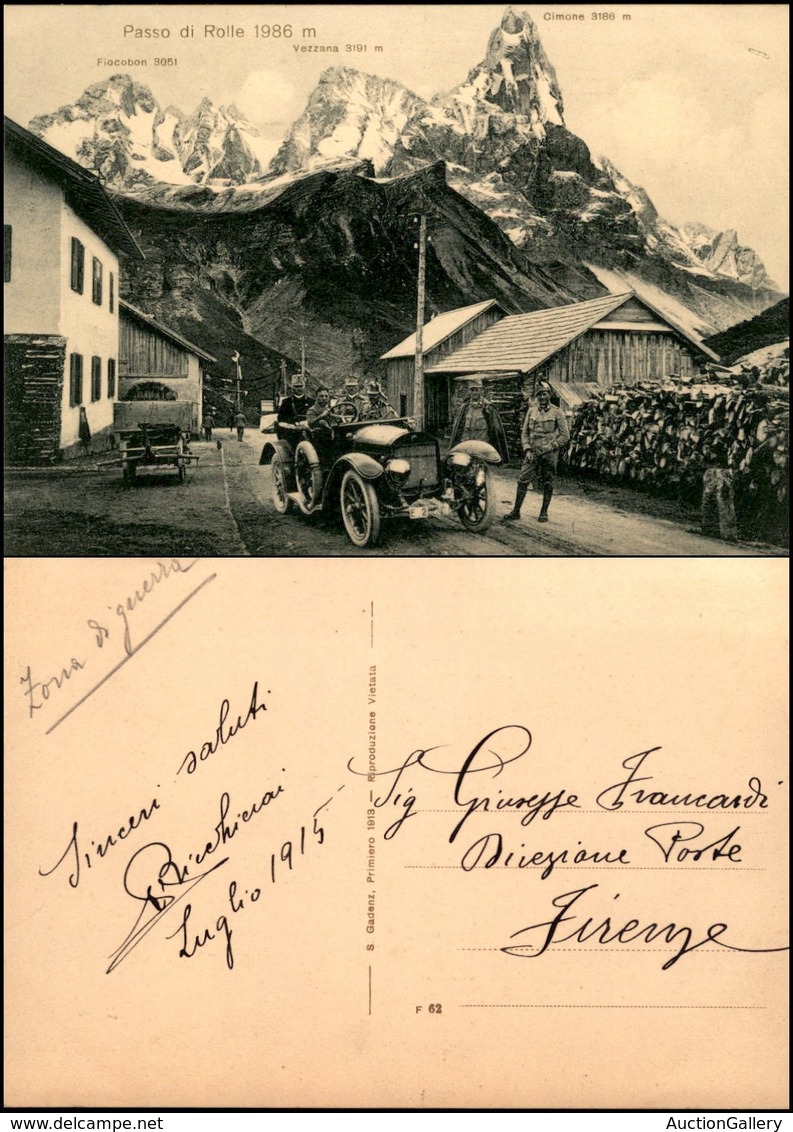 Passo di Rolle 1986 m
Cimone 3186 m
Vezzana 3191 m
Fiocobon 3051
Zona di guerra
Sinceri saluti
Luglio 1915
S. Gadenz, Primiero 1913 — Riproduzione Vietata
Sig Giuseppe Francardi
Direzione Poste
Firenze
F 62
AuctionGallery